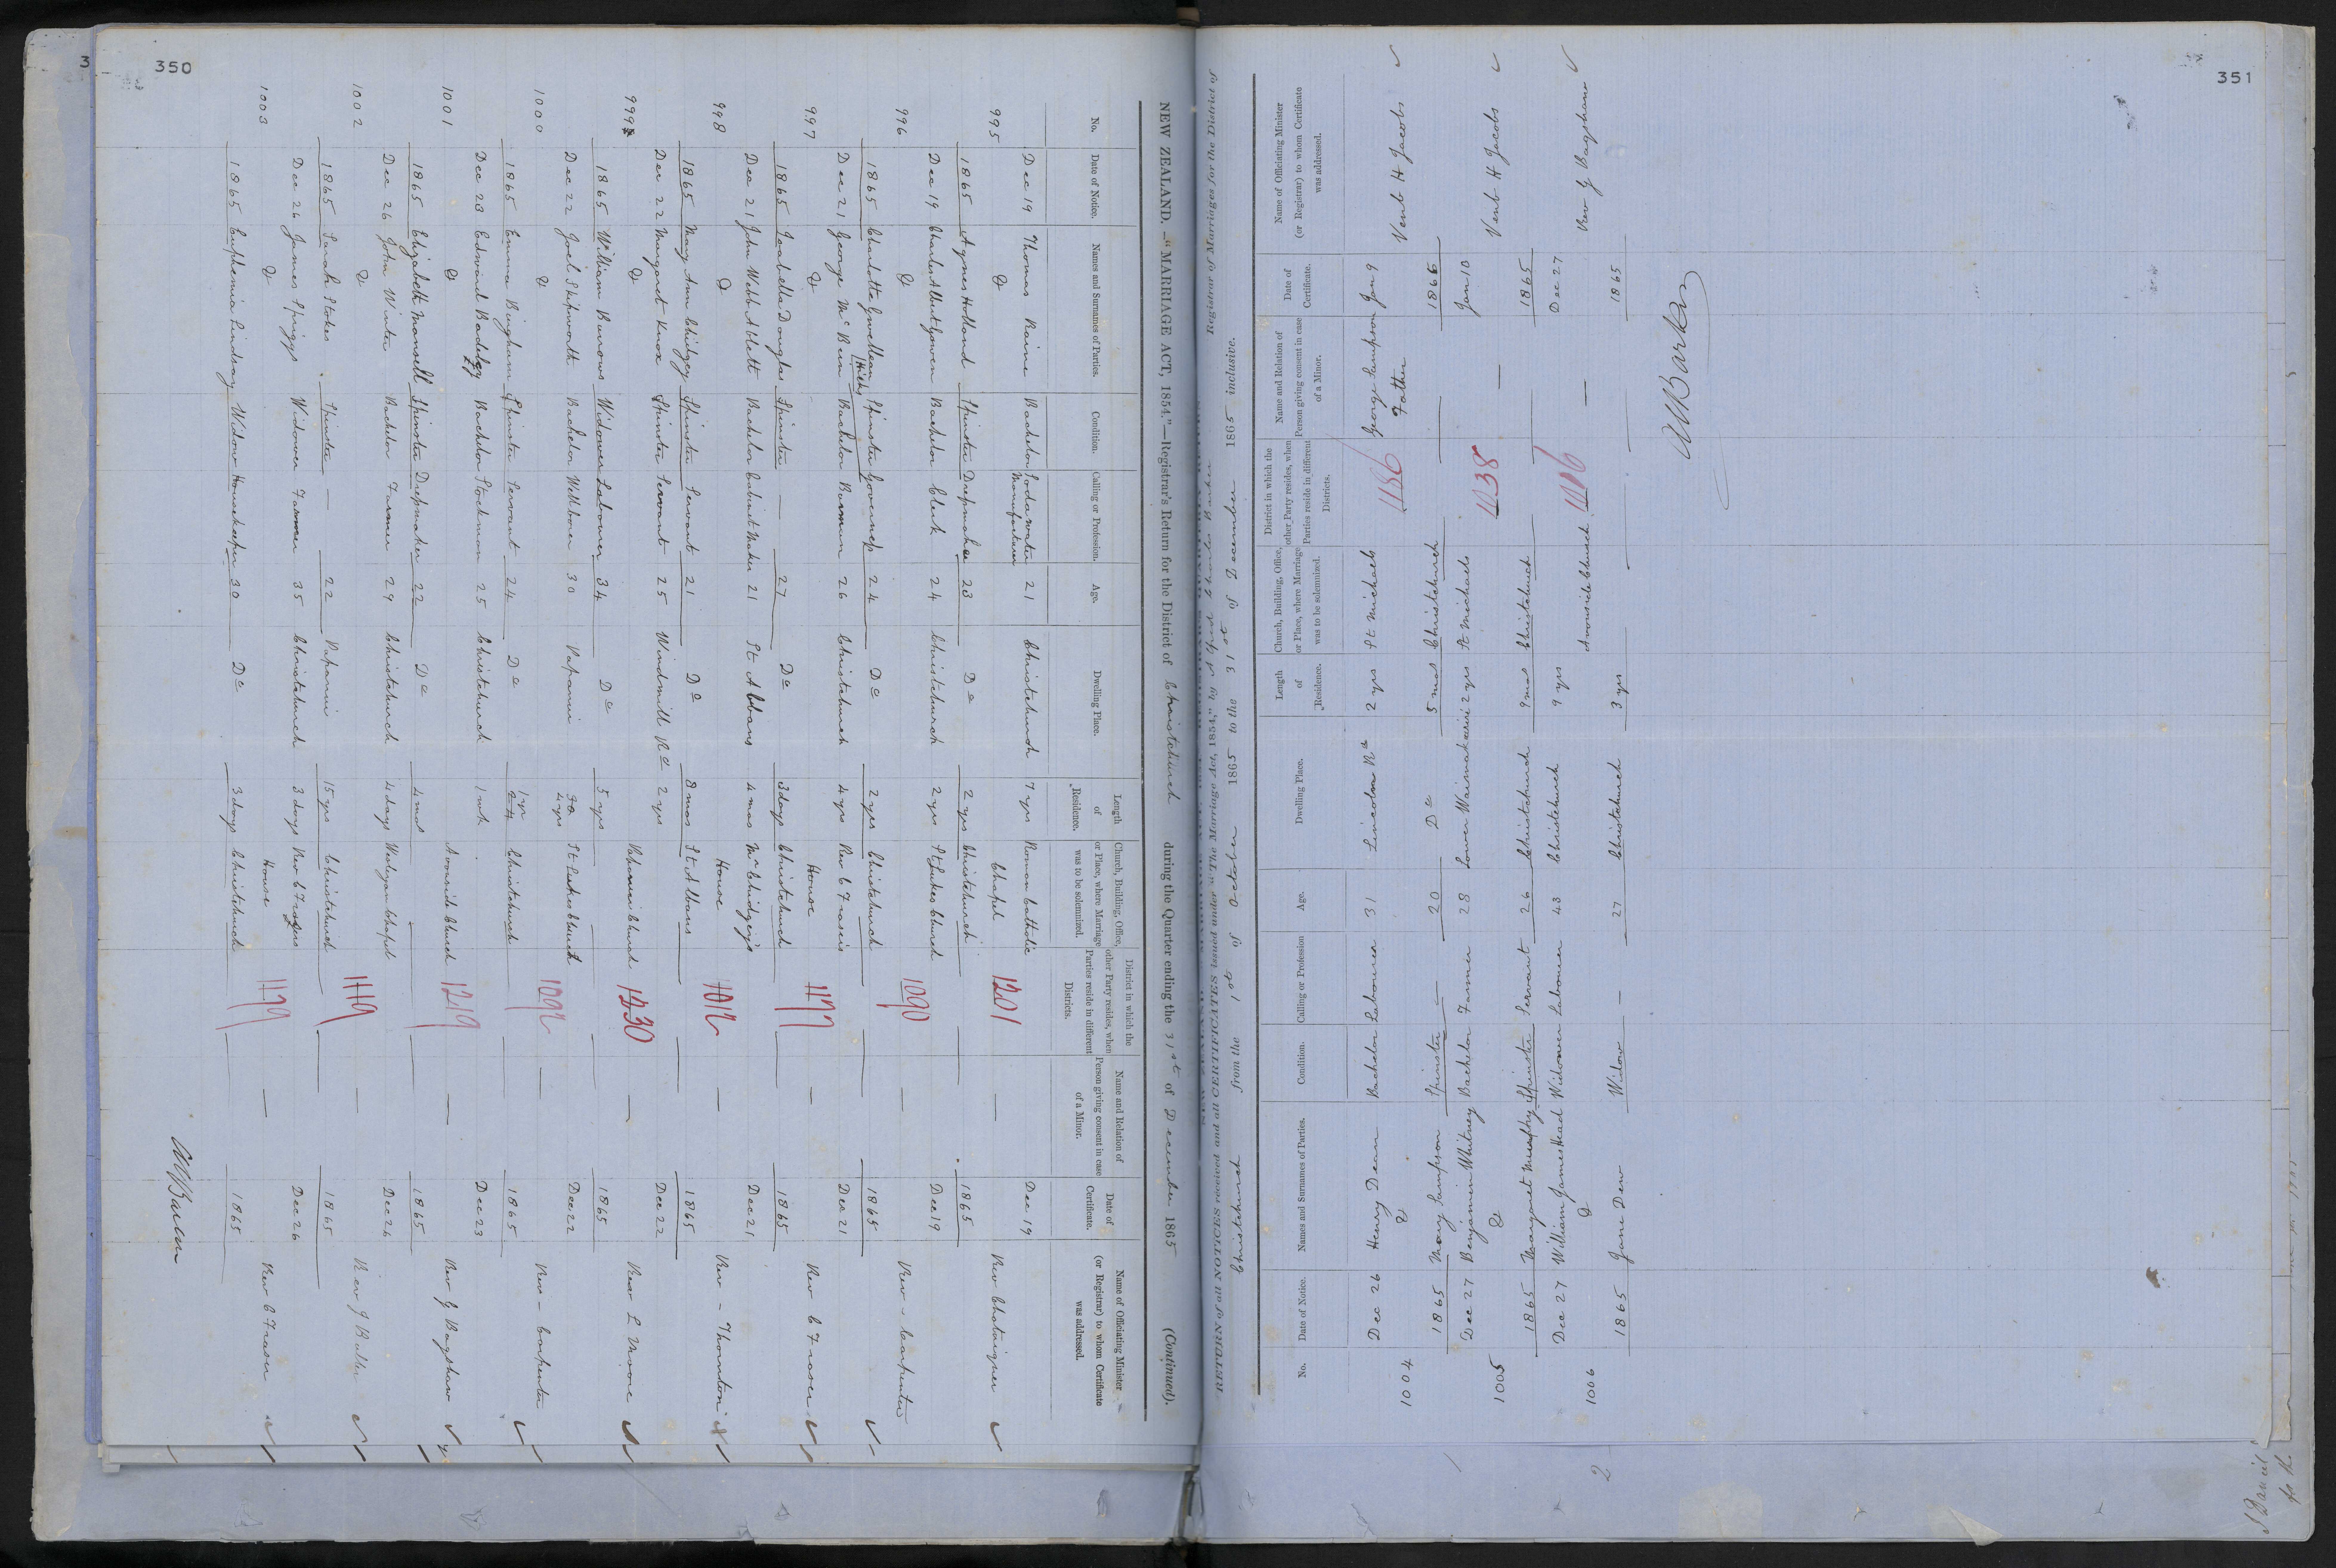 350
NEW ZEALAND.—"MARRIAGE ACT, 1854."—Registrar's Return for the District of Christchurch during the Quarter ending the 31st of December 1865 (Continued).
No. Date of Notice. Names and Surnames of Parties. Condition. Calling or Profession. Age. Dwelling Place. Length of Residence. Church, Building, Office, or Place, where Marriage was to be solemnized. District in which the other Party resides, when Parties reside in different Districts. Name and Relation of Person giving consent in case of a Minor. Date of Certificate. Name of Officiating Minister (or Registrar) to whom Certificate was addressed.
Dec 19 Thomas Raine Bachelor Sodawater Manufacturer 21 Christchurch 7 yrs Roman Catholic Dec 19
995 & Chapel 1201 — Rev Chataigner
1865 Agnes Holland Spinster Dressmaker 23 Do 2 yrs Christchurch 1865
Dec 19 Charles Albert Gowen Bachelor Clerk 24 Christchurch 2 yrs St Lukes Church Dec 19
996 & 1090 — Rev - Carpenter
1865 Charlotte Gwellean Hicks Spinster Governess 24 Do 2 yrs Christchurch 1865
Dec 21 George Bachelor 26 Christchurch 4 yrs Rev C Frasers Dec 21
997 & House 1177 — Rev C Fraser
1865 Isabella Douglas Spinster — 27 Do 3 days Christchurch 1865
Dec 21 John Webb Ablett Bachelor Cabinet Maker 21 St Albans 4 mos Mr Chidgey's Dec 21
998 & House 1012 — Rev - Thornton
1865 Mary Ann Chidgey Spinster Servant 21 Do 8 mos St Albans 1865
Dec 22 Margaret Knox Spinster Servant 25 Windmill Rd 2 yrs Dec 22
999 & Papanui Church 1230 — Rev L Moore
1865 William Burrows Widower Labourer 34 Do 5 yrs 1865
Dec 22 Joel Shipworth Bachelor Wellborer 30 Papanui 4 yrs St Lukes Church Dec 22
1000 & 1092 — Rev - Carpenter
1865 Emma Bingham Spinster Servant 24 Do 1 yr Christchurch 1865
Dec 23 Edwind Bachelor Stockman 25 Christchurch 1 mth Dec 23
1001 & Avonside Church 1219 — Rev J Bagshaw
1865 Elizabeth Mansell Spinster Dressmaker 22 Do 4 mos 1865
Dec 26 John Winter Bachelor Farmer 29 Christchurch 4 days Wesleyan Chapel Dec 26
1002 & 1119 — Rev J Buller
1865 Sarah Stokes Spinster — 22 Papanui 15 yrs Christchurch 1865
Dec 26 James Spriggs Widower Farmer 35 Christchurch 3 days Rev C Frasers Dec 26
1003 & House 1179 — Rev C Fraser
1865 Euphemia Lindsay Widow Housekeeper 30 Do 3 days Christchurch 1865
351
RETURN of all NOTICES received and all CERTIFICATES issued under "The Marriage Act, 1854," by Alfred Charles Barker Registrar of Marriages for the District of
Christchurch from the 1st of October 1865 to the 31st of December 1865 inclusive.
No. Date of Notice. Names and Surnames of Parties. Condition. Calling or Profession Age. Dwelling Place. Length of Residence. Church, Building, Office, or Place, where Marriage was to be solemnized. District in which the other Party resides, when Parties reside in different Districts. Name and Relation of Person giving consent in case of a Minor. Date of Certificate. Name of Officiating Minister (or Registrar) to whom Certificate was addressed.
Dec 26 Henry Dean Bachelor Labourer 31 Lincoln Rd 2 yrs St Michaels George Sampson Jan 9
1004 & 1186 Father Venb H Jacobs
1865 Mary Sampson Spinster — 20 Do 5 mos Christchurch 1866
Dec 27 Benjamin Whitney Bachelor Farmer 28 Lower Waimakariri 2 yrs St Michaels Jan 10
1005 & 1038 — Venb H Jacobs
1865 Margaret Murphy Spinster Servant 26 Christchurch 9 mos Christchurch 1865
Dec 27 William James Head Widower Labourer 43 Christchurch 9 yrs Dec 27
1006 & Avonside Church — Rev J Bagshaw
1865 Jane Dew Widow — 27 Christchurch 3 yrs 1865
1
2